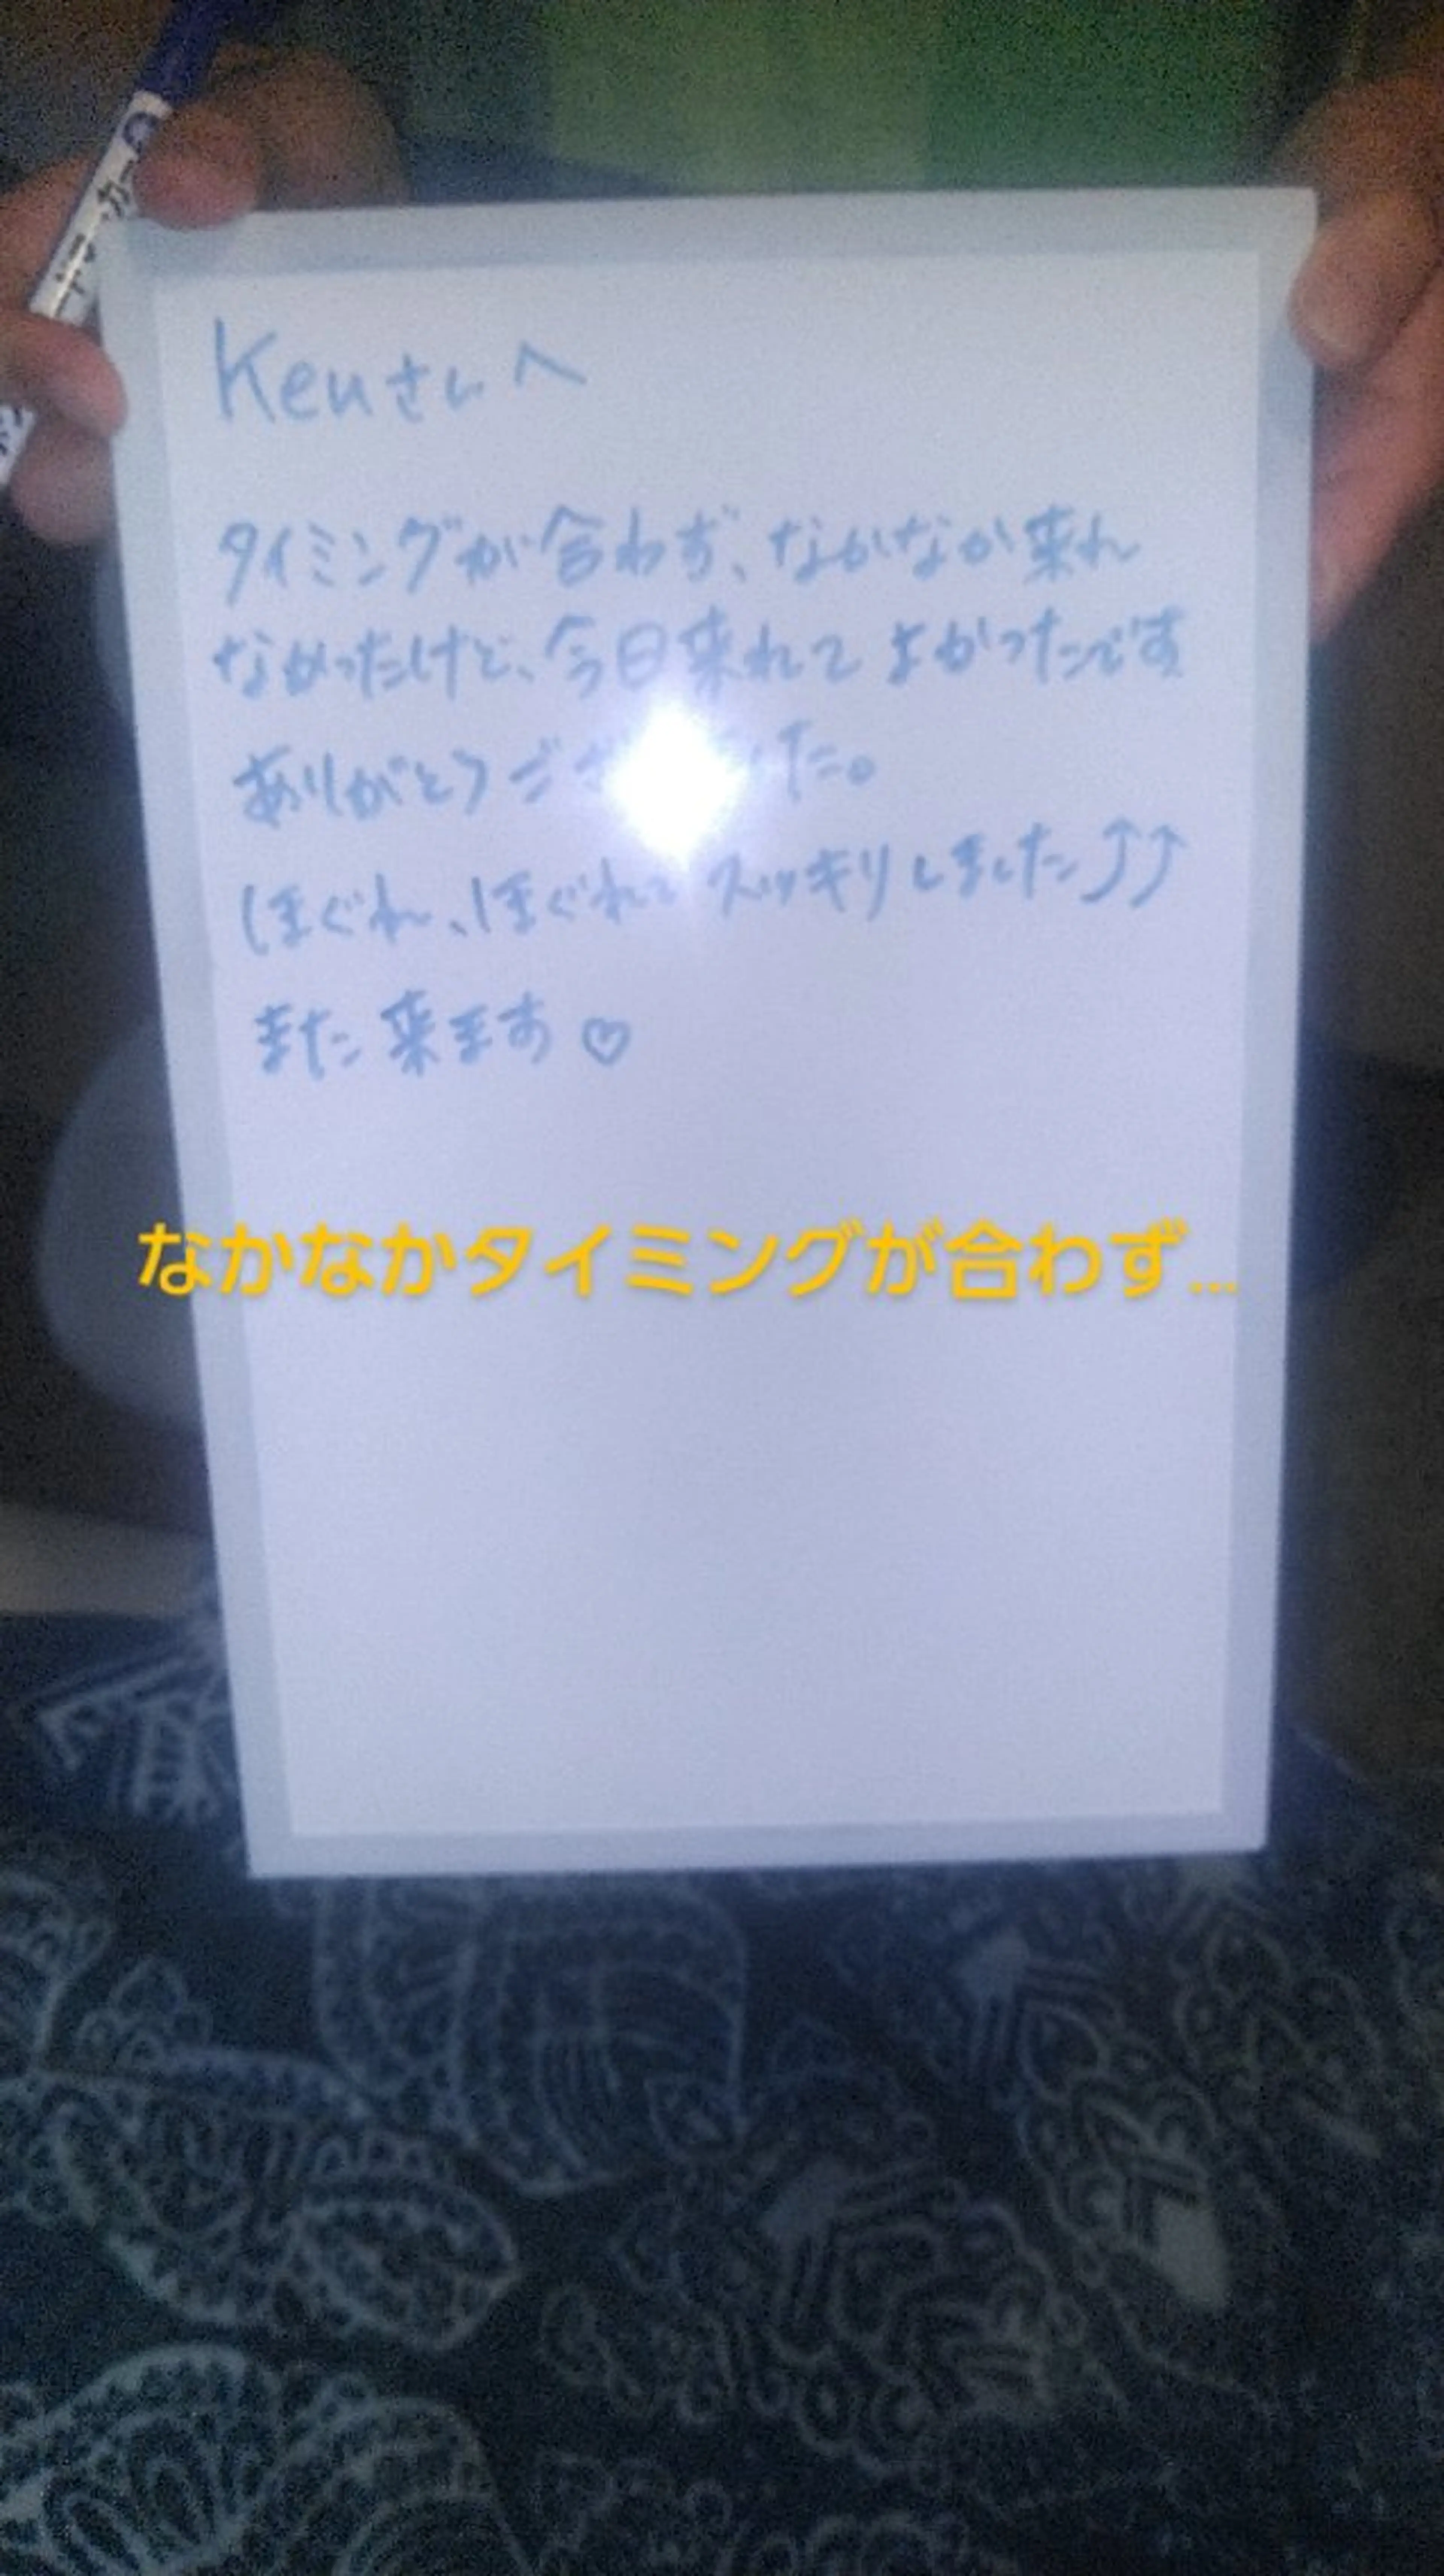 Kenさんへ
タイミングが合わず、なかなか来れ
なかったけど、今日来れてよかったです
ありがとうござ した。
ほぐれ、ほぐれてスッキリしました⤴⤴
また来ます♡
なかなかタイミングが合わず...